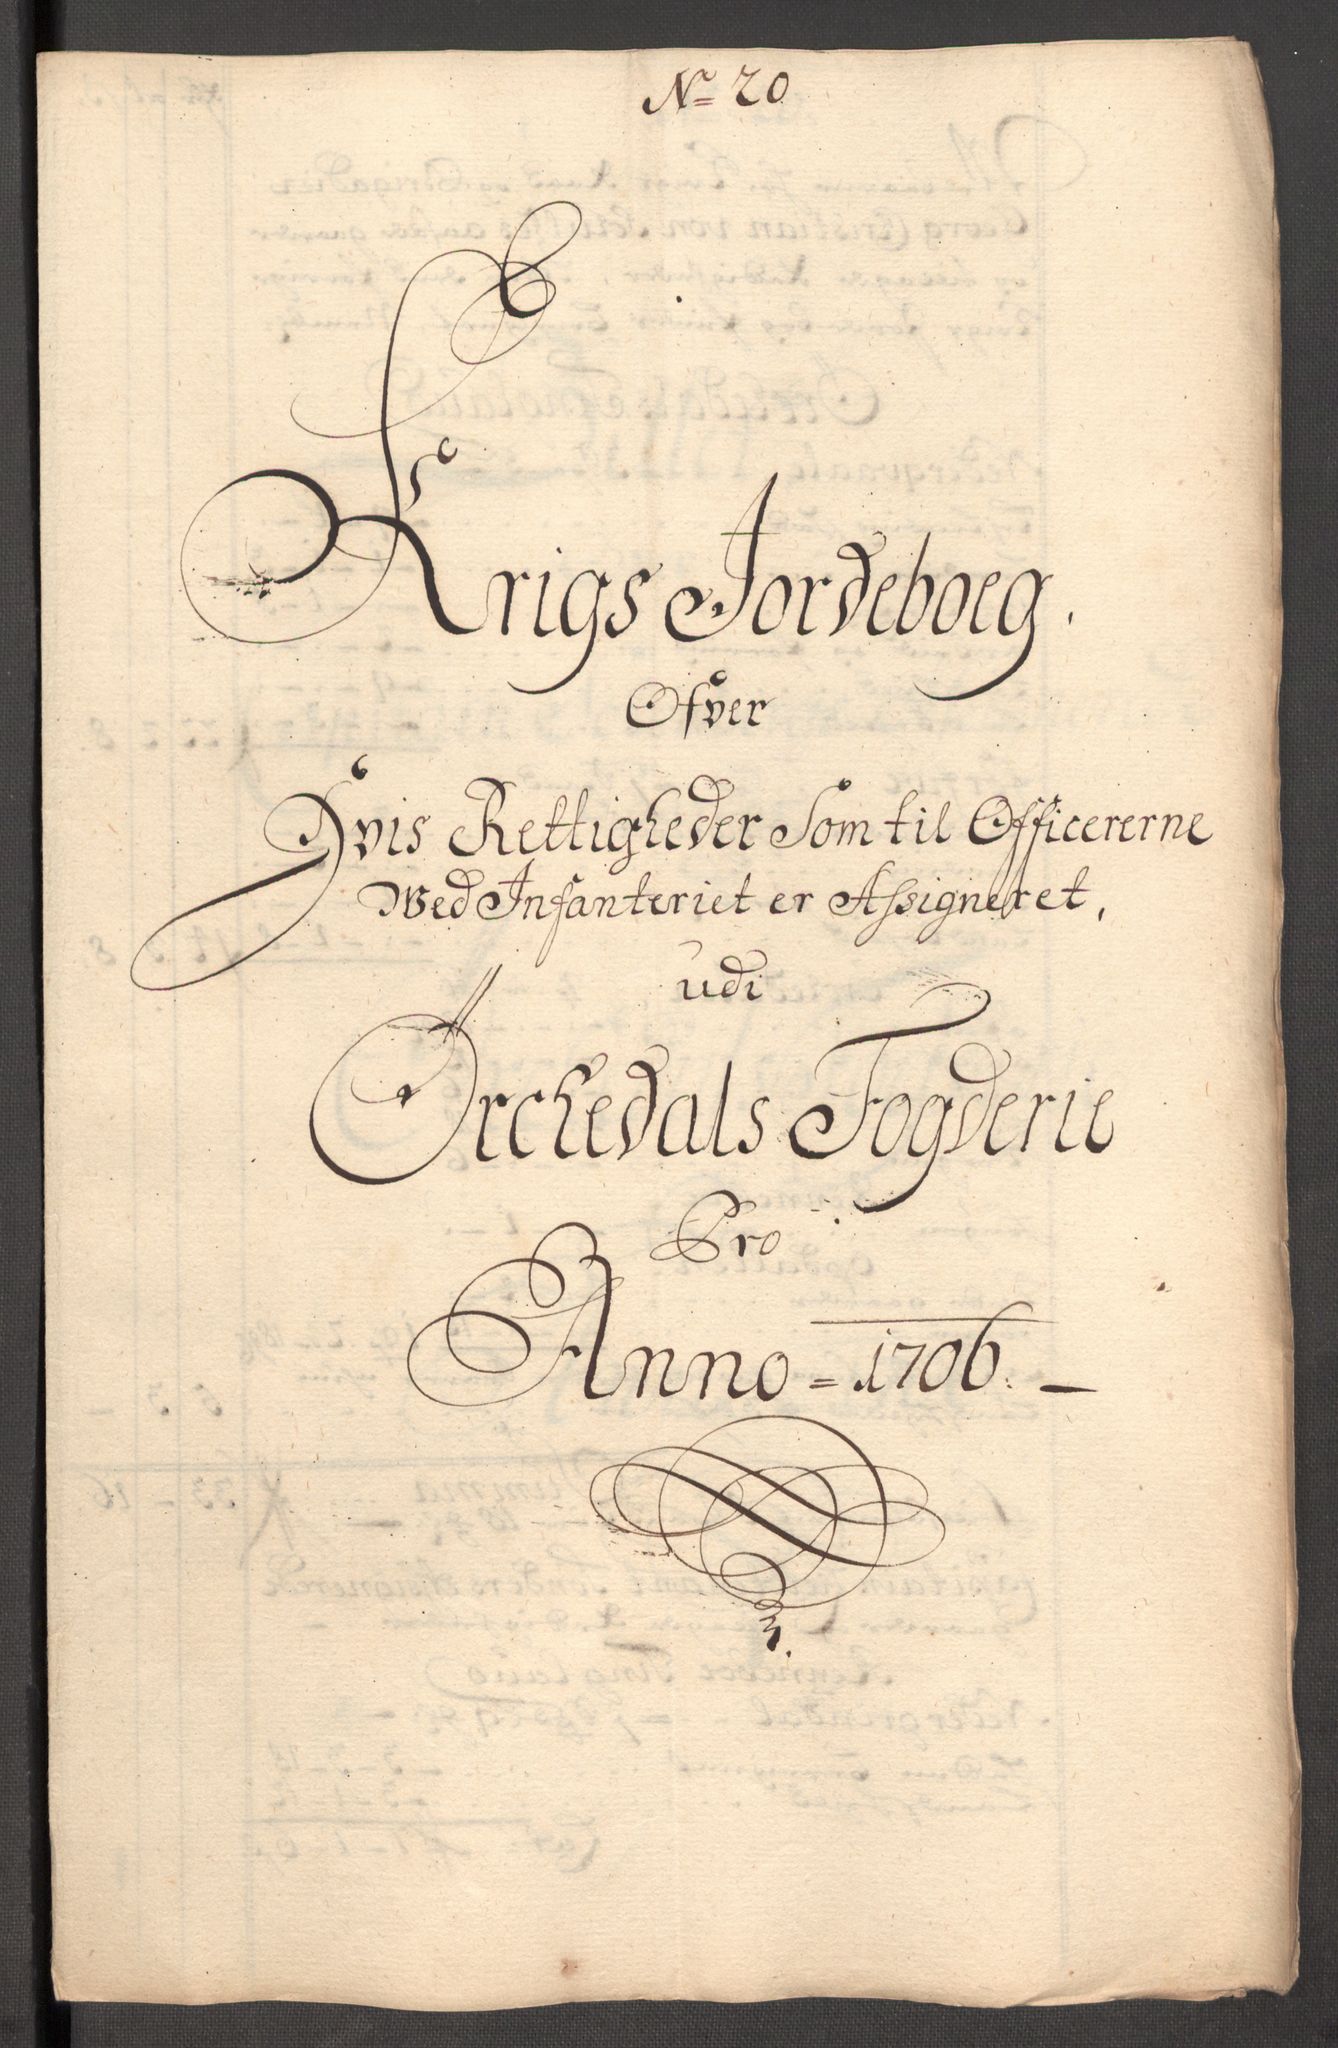 No 20
Krigs Jordeboeg.
Ofver
Hvis Rettigheder Som til Officererne
Wed Infanteriet er Assigneret,
udi
Örckedals Fogderie
Pro
Anno = 1706. —